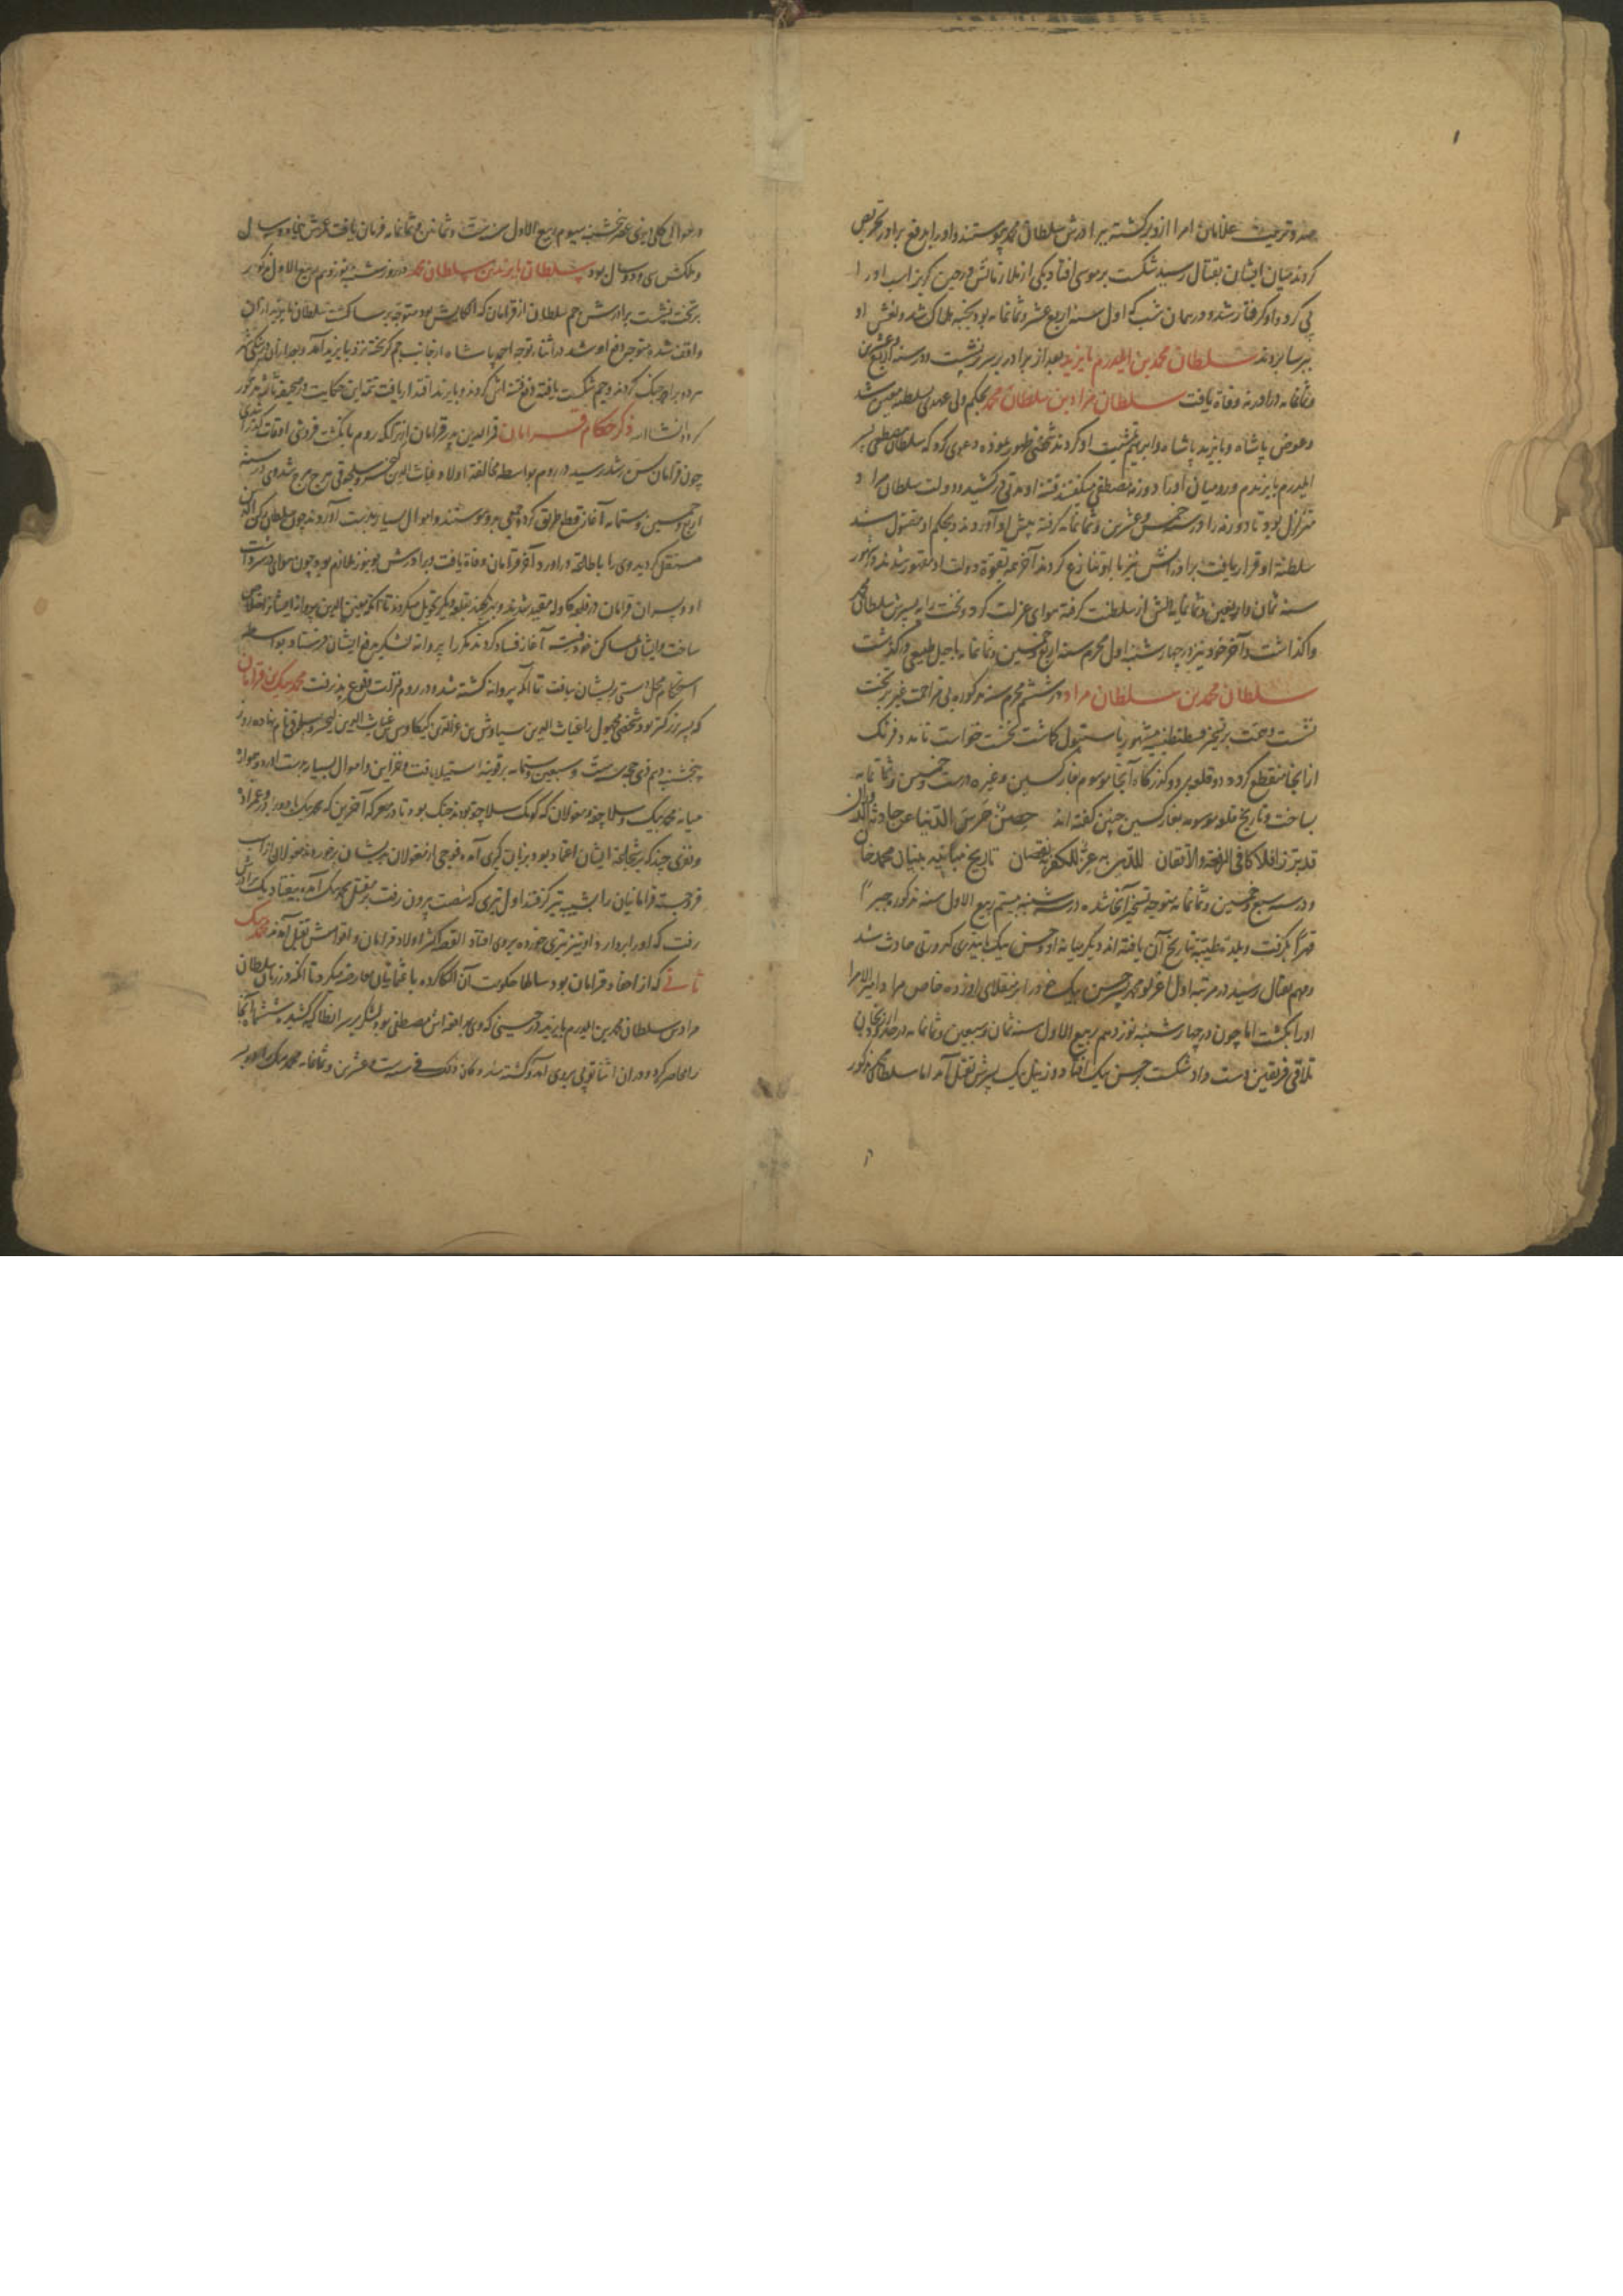 ۱
صد و تربیت غلامان امرا ازو برگشته ببرادرش سلطان محمد پیوستند و او را بر دفع برادر تحریص
کردند میان ایشان بقتال رسید شکست بر موسی افتاد یکی از ملازمانش در حین گریز اسب او را
پی کرد و او گرفتار شد و در همان شب که اول سنه اربع عشر و ثمانمایه بود بخبه هلاک شد و نعش او
ببرسا بردند سلطان محمد بن ایلدرم بایزید بعد از برادر بر سریر نشست و در سنه اربع و عشرین
و ثمانمایه در ادرنه وفاة یافت سلطان مراد بن سلطان محمد بحکم ولی عهدی بسلطنه معین شد
و عوض پاشاه و بایزید پاشاه و ابراهیم تمشیت او کردند شخصی ظهور نموده دعوی کرد که سلطان مصطفی پسر
ایلدرم بایزیدم و رومیان او را دوزمه مصطفی میگفتند فتنه او مدتی در کشید و دولت سلطان مراد
متزلزل بود تا دوزمه را در خمس و عشرین و ثمانمایه گرفته پیش او آوردند و بحکم او مقتول شد
سلطنة او قرار یافت برادرانش نیز با او تنازع کردند آخر همه بقوة دولت او مقهور شدند و در شهور
سنه ثمان و اربعین و ثمانمایه دلش از سلطنت گرفته هوای عزلت کرد و تخت را به پسرش سلطان محمد
واگذاشت و آخر خود نیز در چهارشنبه اول محرم سنه اربع و خمسین و ثمانمایه باجل طبیعی درگذشت
سلطان محمد بن سلطان مراد در ششم محرم سنه مذکوره بی مزاحمت غیر بر تخت
نشست و همت بر تسخیر قسطنطنیه مشهور باستنبول گماشت نخست خواست تا مدد فرنگ
از آنجا منقطع کردد دو قلعه بر دو گذرگاه آنجا موسوم بغازکسین و غیره در سنه خمس و ثمانمایه
بساخت و تاریخ قلعه موسومه بغازکسین چنین گفته اند حصن حرس الدنیا عن حادثه
قد بتز افلاکا فی الرفعة و الاتقان للدین به عز للکفر نقصان تاریخ مبانیه بنیان محمد خان
و در سنه سبع و خمسین و ثمانمایه متوجه تسخیر آنجا شده در سه شنبه بیستم ربیع الاول سنه مذکوره جبرا
قهرا بگرفت و بلدة طیبة تاریخ آن یافته اند دیگر میانه او و حسن بیک بایندری کدورتی حادث شد
و مهم بقتال رسید در مرتبه اول اغرلو محمد پسر حسن بیک خود را بر منقلای او زده خاص مراد امیر الامرا
او را بکشت اما چون در چهارشنبه نوزدهم ربیع الاول سنه ثمان و سبعین و ثمانمایه در حدود آذربیجان
تلاقی فریقین دست داد شکست بر حسن بیک افتاد و زینل بیک پسرش بقتل آمد اما سلطان مذکور
در حوالی ککی ایزی عصر پنجشنبه سیوم ربیع الاول سنه ست و ثمانین و ثمانمایه فرمان یافت عمرش پنجاه و سه سال
و ملکش سی و دو سال بود سلطان بایزید بن سلطان محمد در روز شنبه نوزدهم ربیع الاول مذکور بر
بر تخت نشست برادرش جم سلطان از قرامان که الکایش بود متوجه برسا گشت سلطان بایزید از آن
واقف شده متوجه دفع او شد در اثناء توجه احمد پاشاه از جانب جم گریخته نزد بایزید آمد و بعد از آن
هر دو برادر جنگ کردند و جم شکست یافته دفع فتنه اش کردند و بایزید اقتدار یافت تتمه این حکایت در صحیفه ثالثه مذکور
کردد انشا الله ذکر حکام قرامان قرالدین پدر قرامان از تراکمه روم بانگشت فروشی اوقات گذراندی
چون قرامان بسن رشد رسید در روم بواسطه مخالفة اولاد غیاث الدین کیخسرو سلجوقی هرج مرج شد وی در سنه
اربع و خمسین و ستمایه آغاز قطع طریق کرد و جمعی بدو پیوستند و اموال بسیار بدست آوردند چون سلطان رکن الدین
مستقل گردید وی را باطاعة درآورد و آخر قرامان وفاة یافت برادرش بونوز ملازم بود چون
او و پسران قرامان در قلعه کاوله مقید شدند و بر بکدند بقلعه دیگر تحویل میکردند تا آنکه معین الدین پروانه ایشانرا خلاص
ساخت و ایشان بمساکن خود رفته آغاز فساد کردند مکررا پروانه لشکر بدفع ایشان فرستاد و بواسطه
استحکام محل دستی بر ایشان نیافت تا آنکه پروانه کشته شد و در روم فترات وقوع پذیرفت محمد بیک بن قرامان
که پسر بزرگتر بود شخصی مجهول را غیاث الدین سیاوش بن عزالدین کیکاوس بن غیاث الدین کیخسرو سلجوقی نام نهاده روز
پنجشنبه دهم ذی حجه سنه ست و سبعین و ستمایه بر قونیه استیلا یافت و خزاین و اموال بسیار بدست آورد و همواره
میانه محمد بیک و سلاجقه و مغولان که کومک سلاجقه بودند جنگ بود تا در معرکه آخرین که محمد بیک با دو برادر و عمزاده
و نفری چند که بر شجاعة ایشان اعتماد بود بزبان گیری آمد و فوجی از مغولان بدیشان برخورده مغولان از اسب
فرو جسته قرامانیان را بشیبه تیر گرفتند اول تیری که شست بیرون رفت بر مقتل محمد بیک آمده بیفتاد یک برادرش
رفت که او را بردارد او نیز تیری خورده بروی افتاد القصه اکثر اولاد قرامان و اقوامش بقتل آمدند محمد بیک
ثانی که از احفاد قرامان بود سالها حکومت آن الکا کرده با عثمانیان معارضه میکرد تا آنکه در زمان سلطان
مراد بن سلطان محمد بن ایلدرم بایزید در حینی که وی بدفع عم اش مصطفی بود لشکر بر سر انطاکیه کشید ششماه آنجا
را محاصره کرد و در آن اثنا توپی بروی آمد و کشته شد و کان ذلک فی سنه ست و عشرین و ثمانمایه محمد بیک را دو پسر